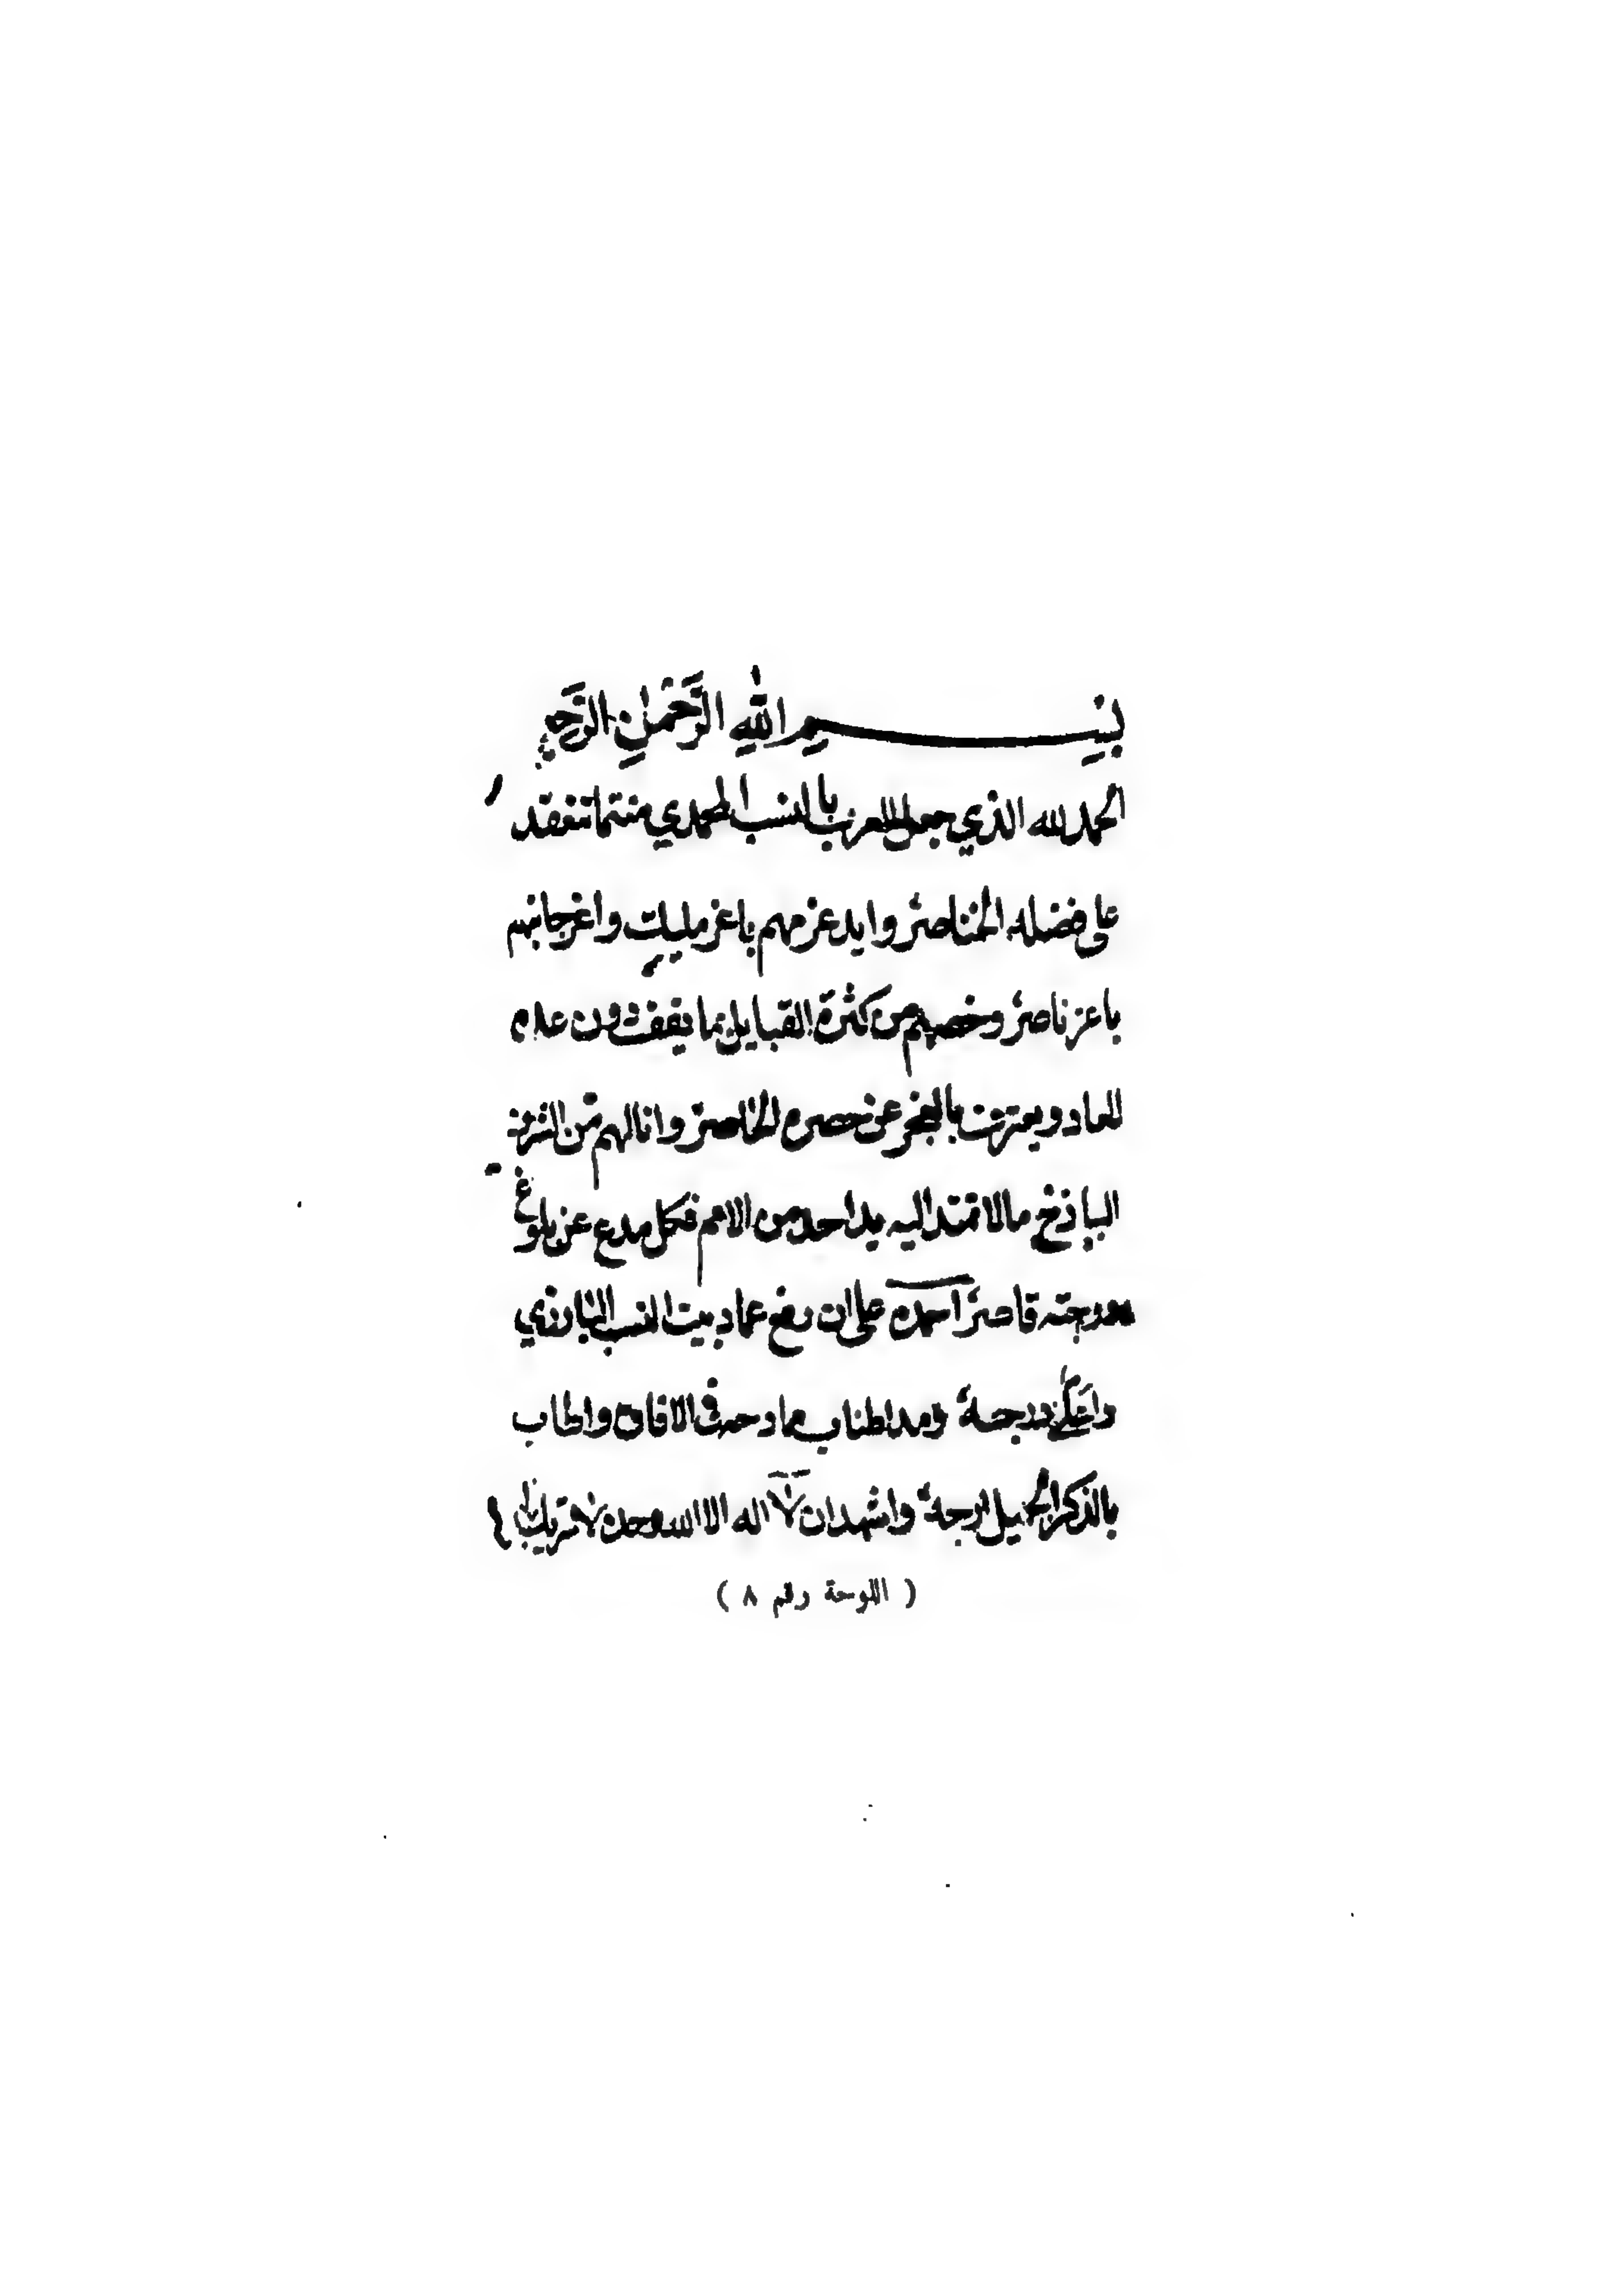 بسم الله الرحمن الرحيم
الحمد لله الذي جعل للعرب بالنسب المحمدي منتما تنعقد
على فضله الخناصر وايد عزمهم باعز مليك واعز جانبهم
باعز ناصر وخصهم من كثرة القبايل بما يقف دون عده
العاد ويعترف بالعجز عن حصره الحاصر وانالهم من الشرف
الباذخ مالا تمتد اليه يد احد من الامم فكل مدع عن بلوغ
درجته قاصر احمده على ان رفع عماد بيت النسب البارزي
واعلى درجته ومد اطناب ممادحه في الافاق واطاب
بالذكر الجميل ارجه واشهد ان لا اله الا الله وحده لا شريك له
( اللوحة رقم ٨ )